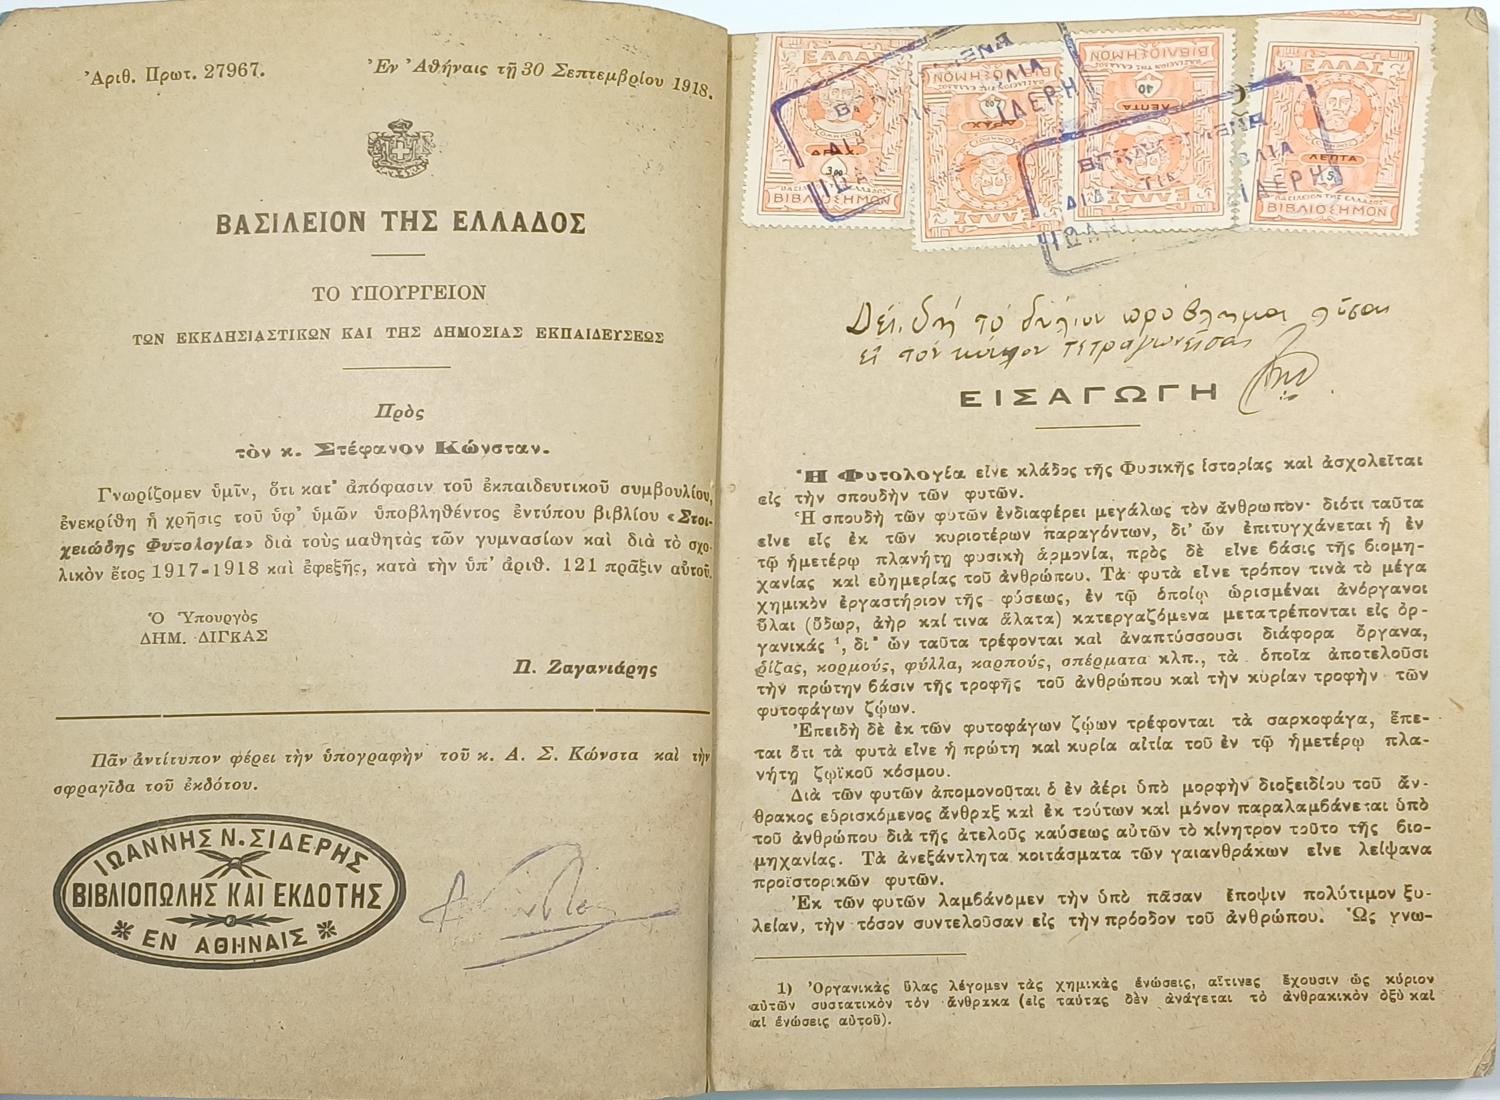 Ἀριθ. Πρωτ. 27967.
Ἐν Ἀθήναις τῇ 30 Σεπτεμβρίου 1918.
ΒΑΣΙΛΕΙΟΝ ΤΗΣ ΕΛΛΑΔΟΣ
ΤΟ ΥΠΟΥΡΓΕΙΟΝ
ΤΩΝ ΕΚΚΛΗΣΙΑΣΤΙΚΩΝ ΚΑΙ ΤΗΣ ΔΗΜΟΣΙΑΣ ΕΚΠΑΙΔΕΥΣΕΩΣ
Πρὸς
τὸν κ. Στέφανον Κώνσταν.
Γνωρίζομεν ὑμῖν, ὅτι κατ' ἀπόφασιν τοῦ ἐκπαιδευτικοῦ συμβουλίου,
ἐνεκρίθη ἡ χρῆσις τοῦ ὑφ' ὑμῶν ὑποβληθέντος ἐντύπου βιβλίου «Στοι-
χειώδης Φυτολογία» διὰ τοὺς μαθητὰς τῶν γυμνασίων καὶ διὰ τὸ σχο-
λικὸν ἔτος 1917-1918 καὶ ἐφεξῆς, κατὰ τὴν ὑπ' ἀριθ. 121 πρᾶξιν αὐτοῦ.
Ὁ Ὑπουργὸς
ΔΗΜ. ΔΙΓΚΑΣ
Π. Ζαγανιάρης
Πᾶν ἀντίτυπον φέρει τὴν ὑπογραφὴν τοῦ κ. Α. Σ. Κώνστα καὶ τὴν
σφραγῖδα τοῦ ἐκδότου.
ΙΩΑΝΝΗΣ Ν. ΣΙΔΕΡΗΣ
ΒΙΒΛΙΟΠΩΛΗΣ ΚΑΙ ΕΚΔΟΤΗΣ
ΕΝ ΑΘΗΝΑΙΣ
ΒΑΣΙΛΕΙΟΝ ΤΗΣ ΕΛΛΑΔΟΣ
ΒΙΒΛΙΟΣΗΜΟΝ
ΔΡΑΧ
ΕΛΛΑΣ
ΒΙΒΛΙΟΣΗΜΟΝ
ΒΑΣΙΛΕΙΟΝ ΤΗΣ ΕΛΛΑΔΟΣ
40
ΛΕΠΤΑ
ΕΛΛΑΣ
ΕΛΛΑΣ
ΛΕΠΤΑ
5
ΒΑΣΙΛΕΙΟΝ ΤΗΣ ΕΛΛΑΔΟΣ
ΒΙΒΛΙΟΣΗΜΟΝ
Δεῖ δὴ τὸ δήλιον πρόβλημα λῦσαι
τὸν τετραγωνεῖσαι
ΕΙΣΑΓΩΓΗ
Ἡ Φυτολογία εἶνε κλάδος τῆς Φυσικῆς ἱστορίας καὶ ἀσχολεῖται
εἰς τὴν σπουδὴν τῶν φυτῶν.
Ἡ σπουδὴ τῶν φυτῶν ἐνδιαφέρει μεγάλως τὸν ἄνθρωπον· διότι ταῦτα
εἶνε εἷς ἐκ τῶν κυριοτέρων παραγόντων, δι' ὧν ἐπιτυγχάνεται ἡ ἐν
τῷ ἡμετέρῳ πλανήτῃ φυσικὴ ἁρμονία, πρὸς δὲ εἶνε βάσις τῆς βιομη-
χανίας καὶ εὐημερίας τοῦ ἀνθρώπου. Τὰ φυτὰ εἶνε τρόπον τινὰ τὸ μέγα
χημικὸν ἐργαστήριον τῆς φύσεως, ἐν τῷ ὁποίῳ ὡρισμέναι ἀνόργανοι
ὗλαι (ὕδωρ, ἀὴρ καί τινα ἅλατα) κατεργαζόμενα μετατρέπονται εἰς ὀρ-
γανικάς ¹, δι' ὧν ταῦτα τρέφονται καὶ ἀναπτύσσουσι διάφορα ὄργανα,
ῥίζας, κορμούς, φύλλα, καρπούς, σπέρματα κλπ., τὰ ὁποῖα ἀποτελοῦσι
τὴν πρώτην βάσιν τῆς τροφῆς τοῦ ἀνθρώπου καὶ τὴν κυρίαν τροφὴν τῶν
φυτοφάγων ζῴων.
Ἐπειδὴ δὲ ἐκ τῶν φυτοφάγων ζῴων τρέφονται τὰ σαρκοφάγα, ἕπε-
ται ὅτι τὰ φυτὰ εἶνε ἡ πρώτη καὶ κυρία αἰτία τοῦ ἐν τῷ ἡμετέρῳ πλα-
νήτῃ ζῳϊκοῦ κόσμου.
Διὰ τῶν φυτῶν ἀπομονοῦται ὁ ἐν ἀέρι ὑπὸ μορφὴν διοξειδίου τοῦ ἄν-
θρακος εὑρισκόμενος ἄνθραξ καὶ ἐκ τούτων καὶ μόνον παραλαμβάνεται ὑπὸ
τοῦ ἀνθρώπου διὰ τῆς ἀτελοῦς καύσεως αὐτῶν τὸ κίνητρον τοῦτο τῆς βιο-
μηχανίας. Τὰ ἀνεξάντλητα κοιτάσματα τῶν γαιανθράκων εἶνε λείψανα
προϊστορικῶν φυτῶν.
Ἐκ τῶν φυτῶν λαμβάνομεν τὴν ὑπὸ πᾶσαν ἔποψιν πολύτιμον ξυ-
λείαν, τὴν τόσον συντελοῦσαν εἰς τὴν πρόοδον τοῦ ἀνθρώπου. Ὡς γνω-
1) Ὀργανικὰς ὕλας λέγομεν τὰς χημικὰς ἑνώσεις, αἵτινες ἔχουσιν ὡς κύριον
αὐτῶν συστατικὸν τὸν ἄνθρακα (εἰς ταύτας δὲν ἀνάγεται τὸ ἀνθρακικὸν ὀξὺ καὶ
αἱ ἑνώσεις αὐτοῦ).